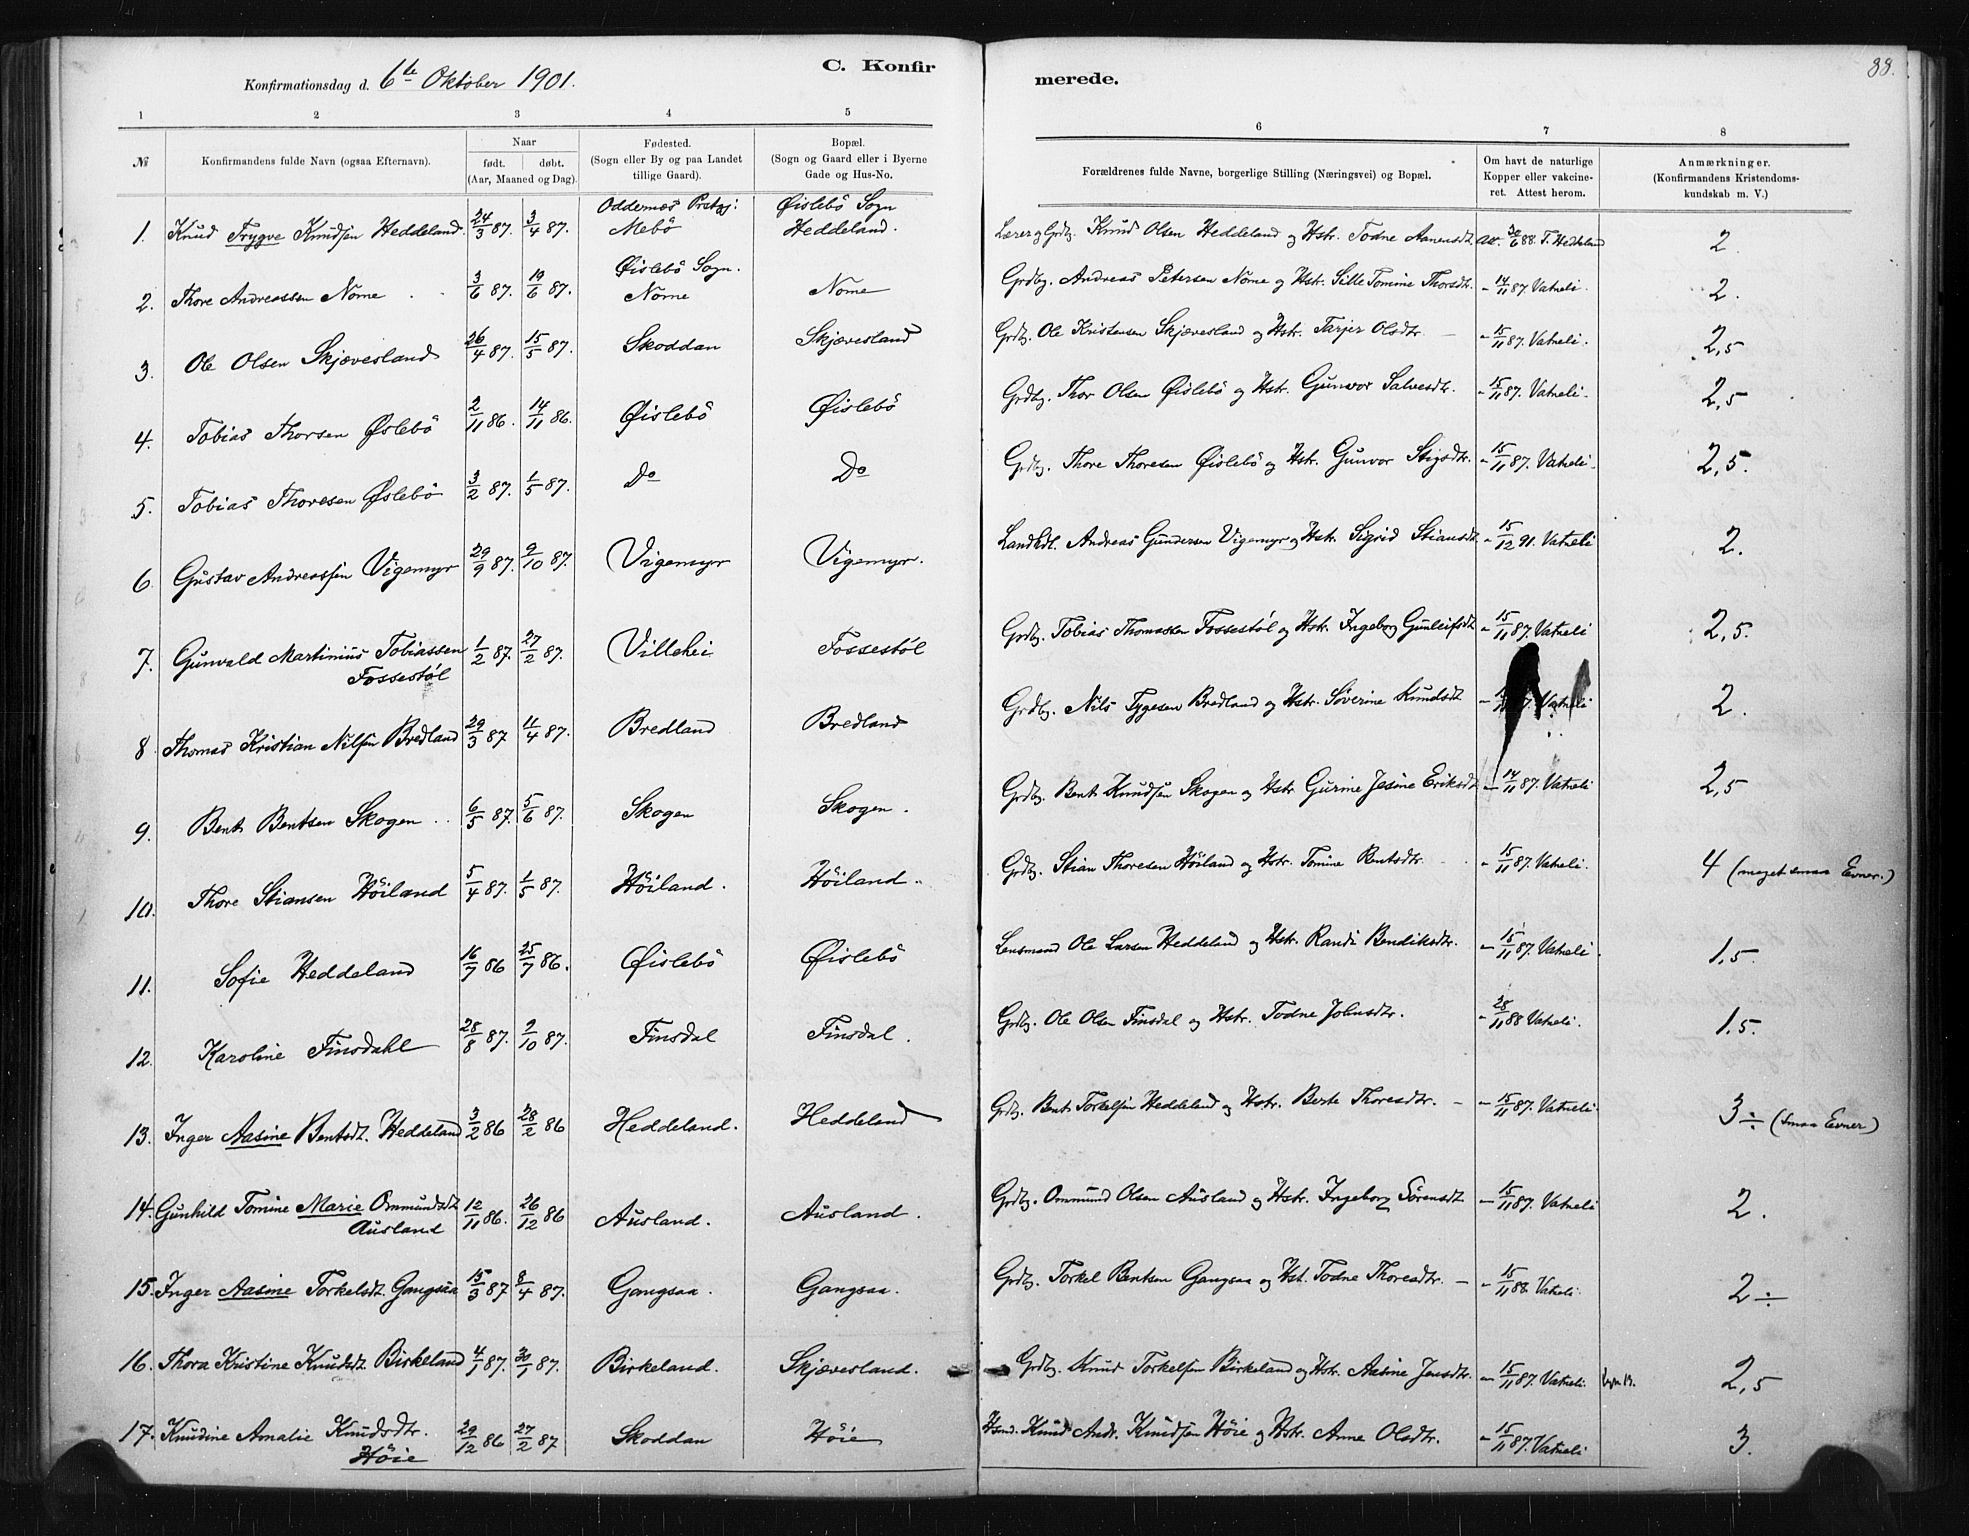 Konfirmationsdag d. 6te Oktober 1901.
C. Konfirmerede.
88.
1 2 3 4 5 6 7 8
№ Konfirmandens fulde Navn (ogsaa Efternavn). Naar født. døbt. (Aar, Maaned og Dag). Fødested. (Sogn eller By og paa Landet tillige Gaard). Bopæl. (Sogn og Gaard eller i Byerne Gade og Hus-No. Forældrenes fulde Navne, borgerlige Stilling (Næringsvei) og Bopæl. Om havt de naturlige Kopper eller vakcineret. Attest herom. Anmærkninger. (Konfirmandens Kristendomskundskab m. V.)
1. Knud Trygve Knudsen Heddeland. 24/3 87. 3/4 87. Oddernæs Prstgj: Mebö Øislebö Sogn Heddeland. Lærer og Grdbg. Knud Olsen Heddeland og Hstr. Todne Aanensdt. Att. 30/6 88. T. Heddeland 2
2. Thore Andreassen Nome 3/6 87. 19/6 87. Øislebö Sogn. Nome Nome Grdbg. Andreas Petersen Nome og Hstr. Sille Tomine Thorsdtr. - 14/11 87 Vatneli. 2.
3. Ole Olsen Skjævesland 26/4 87. 15/5 87. Skoddan Skjævesland Grdbg. Ole Kristensen Skjævesland og Hstr. Tarjer Olsdtr. - 15/11 87. Vatneli. 2,5
4. Tobias Thorsen Øslebö 2/11 86. 14/11 86. Øislebö Øislebö Grdbg. Thor Olsen Øislebö og Hstr. Gunvor Salvesdtr. - 15/11 87. Vatneli. 2,5
5. Tobias Thoresen Øslebö 3/2 87. 1/5 87. Do Do Grdbg. Thore Thoresen Øislebö og Hstr. Gunvor Stigsdtr. - 15/11 87. Vatneli. 2,5.
6. Gustav Andreassen Vigemyr 29/9 87. 9/10 87. Vigemyr Vigemyr. Landhdl. Andreas Gundersen Vigemyr og Hstr. Sigrid Stiansdt. - 15/12 91. Vatneli 2.
7. Gunvald Martinius Tobiassen Fossestøl 1/2 87. 27/2 87. Villehei Fossestøl Grdbg. Tobias Thomassen Fossestøl og Hstr. Ingeborg Gunleifsdt - 15/11 87. Vatneli 2,5.
8. Thomas Kristian Nilsen Bredland 29/3 87 11/4 87. Bredland Bredland Grdbg. Nils Tygesen Bredland og Hstr. Söverine Knudsdt Vatneli 2.
9. Bent Bentsen Skogen 6/5 87. 5/6 87. Skogen Skogen. Grdbg. Bent Knudsen Skogen og Hstr Gurine Jesine Eriksdt - 14/11 87. Vatneli 2,5
10. Thore Stiansen Höiland 5/4 87. 1/5 87. Höiland. Höiland. Grdbg. Stian Thoresen Höiland og Hstr. Tomine Bentsdtr. - 15/11 87. Vatneli. 4 (meget smaa Evner.)
11. Sofie Heddeland 16/7 86 25/7 86. Øislebö Øislebö Lensmand Ole Larsen Heddeland og Hstr. Randi Bendiksdtr. - 15/11 87. Vatneli. 1,5.
12. Karoline Finsdahl 28/8 87. 9/10 87. Finsdal Finsdal. Grdbg. Ole Olsen Finsdal og Hstr. Todne Johnsdtr. - 28/11 88 Vatneli. 1,5.
13. Inger Aasine Bentsdt. Heddeland 3/2 86 28/2 86 Heddeland. Heddeland Grdbg. Bent Torkelsen Heddeland og Hstr. Berte Thoresdtr. - 15/11 87. Vatneli. 3 ÷ (smaa Evner)
14. Gunhild Tomine Marie Ommundsdt Ausland 12/11 86. 26/12 86 Ausland. Ausland. Grdbg. Ommund Olsen Ausland og Hstr. Ingeborg Sörensdt - 15/11 87. Vatneli 2.
15. Inger Aasine Torkelsdt. Gangsaa 15/3 87 8/4 87. Gangsaa. Gangsaa. Grdbg. Torkel Bentsen Gangsaa og Hst. Todne Thoresdtr. - 15/11 88. Vatneli. 2 ÷
16. Thora Kristine Knudsdt. Birkeland 4/1 87. 30/1 87. Birkeland. Skjævesland. Grdbg. Knud Torkelsen Birkeland og Hstr. Aasine Jensdtr. - 15/11 87. Vatneli. 2,5
17. Knudine Amalie Knudsdtr. Höie 29/12 86 27/2 87 Skoddan Höie Hsmd. Knud Andr. Knudsen Höie og Hstr. Anne Olsdtr. - 15/11 87. Vatneli 3.